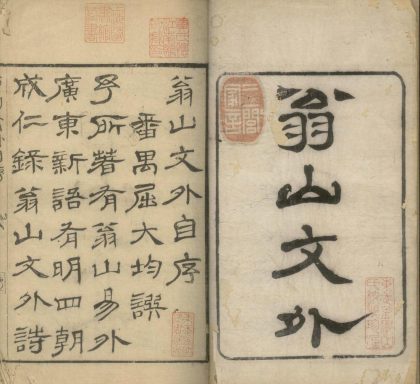 翁山文外
翁山文外自序
番禺屈大均譔
予所著有翁山易外
廣東新語有明四朝
成仁錄翁山文外詩